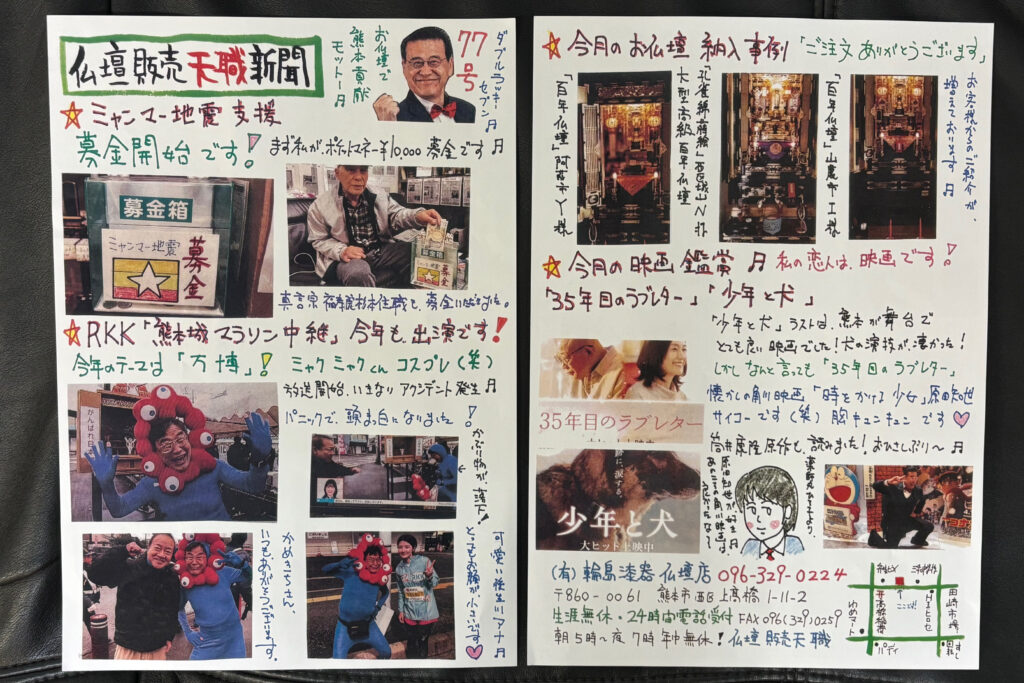 仏壇販売天職新聞
お仏壇で
熊本貢献
モットー♬
77号
ダブルラッキー
セブン♬
☆ミャンマー地震支援
募金開始です!
まず私が、ポケットマネー¥10,000募金です♬
募金箱
ミャンマー地震
募金
募金箱
ミャンマー地震
募金
☆RKK「熊本城マラソン中継」今年も、出演です!
今年のテーマは「万博」!
ミャクミャクくんコスプレ(笑)
放送開始、いきなりアクシデント発生♬
パニックで、頭真っ白になりました!
かぶり物が、落下!
がんばれ
かめきちさん、
いつもありがとうございます。
可愛い後生川アナ♬
とってもお顔が、小さいです
☆今月のお仏壇納入事例「ご注文ありがとうございます」
「百年仏壇」阿蘇市Y様
大型高級百年仏壇
「百年仏壇」山鹿市I様
お客様からのご紹介が、
増えております♬
☆今月の映画鑑賞♬私の恋人は、映画です!
「35年目のラブレター」「少年と犬」
「少年と犬」ラストは、熊本が舞台で
とても良い映画でした!犬の演技が、凄かった!
しかしなんと言っても「35年目のラブレター」
懐かしの角川映画「時をかける少女」原田知世
サイコーです(笑)胸キュンキュンです♡
筒井康隆原作も、読みました!おひさしぶり〜♬
35年目のラブレター
少年と犬
大ヒット上映中
(有)輪島漆器仏壇店 096-329-0224
〒860-0061 熊本市西区上高橋1-11-2
生涯無休・24時間電話受付 FAX 096(329)0259
朝5時〜夜7時年中無休!仏壇販売天職
ここです!
田崎市場
ゆめマート